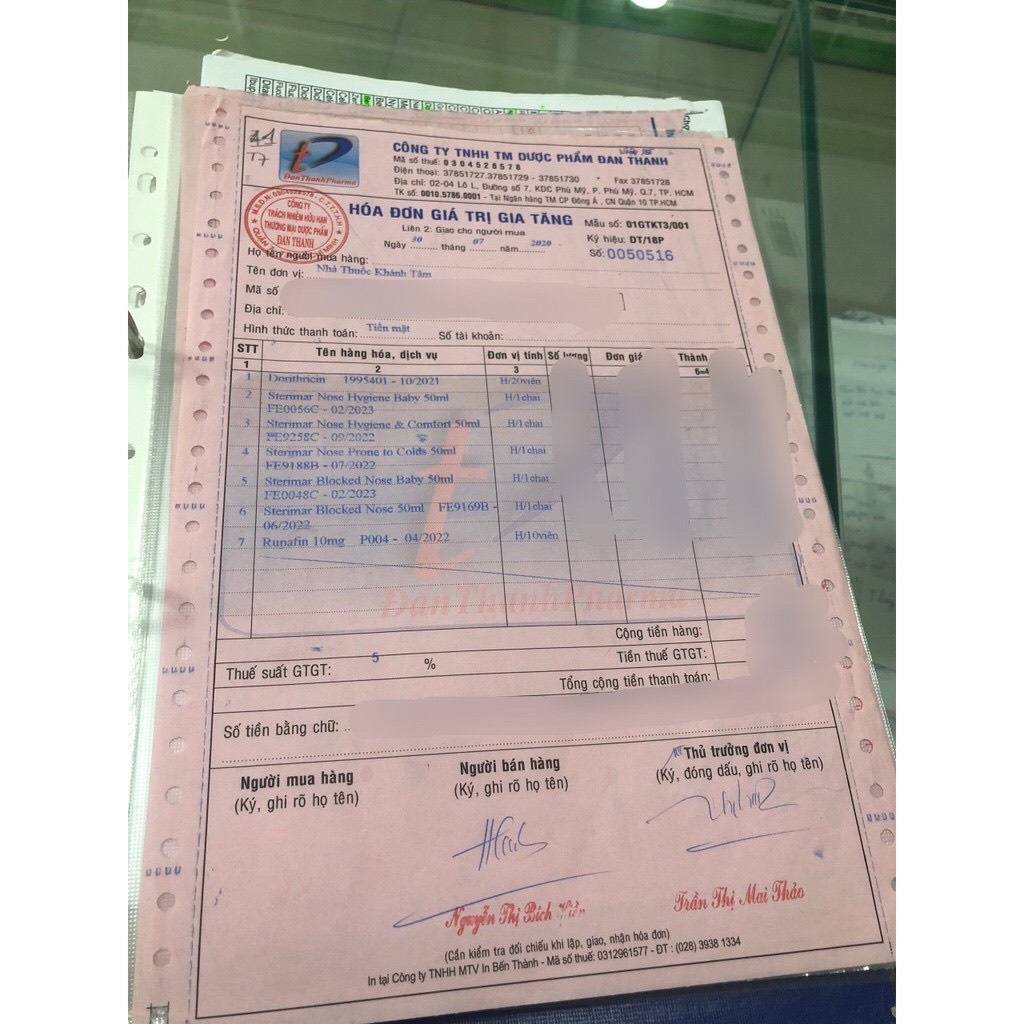 DanThanhPharma
CÔNG TY TNHH TM DƯỢC PHẨM ĐAN THANH
Mã số thuế: 0304528578
Điện thoại: 37851727.37851729 - 37851730 * Fax 37851728
Địa chỉ: 02-04 Lô L, Đường số 7, KDC Phú Mỹ, P. Phú Mỹ, Q.7, TP. HCM
TK số: 0010.5786.0001 - Tại Ngân hàng TM CP Đông Á, CN Quận 10 TP.HCM
CÔNG TY
TRÁCH NHIỆM HỮU HẠN
THƯƠNG MẠI DƯỢC PHẨM
ĐAN THANH
HÓA ĐƠN GIÁ TRỊ GIA TĂNG
Mẫu số: 01GTKT3/001
Liên 2: Giao cho người mua
Ký hiệu: DT/18P
Ngày 30 tháng 07 năm 2020
Số: 0050516
Họ tên người mua hàng:
Tên đơn vị: Nhà Thuốc Khánh Tâm
Mã số
Địa chỉ:
Hình thức thanh toán: Tiền mặt Số tài khoản:
STT Tên hàng hóa, dịch vụ Đơn vị tính Số lượng Đơn giá Thành
1 2 3 6=4
1 Dorithricin 1995401 - 10/2021 H/20viên
2 Sterimar Nose Hygiene Baby 50ml H/1chai
FE0056C - 02/2023
3 Sterimar Nose Hygiene & Comfort 50ml H/1chai
FE9258C - 09/2022
4 Sterimar Nose Prone to Colds 50ml H/1chai
FE9188B - 07/2022
5 Sterimar Blocked Nose Baby 50ml H/1chai
FE0048C - 02/2023
6 Sterimar Blocked Nose 50ml FE9169B - H/1chai
06/2022
7 Rupafin 10mg P004 - 04/2022 H/10viên
DanThanhPharma
Cộng tiền hàng:
Thuế suất GTGT: 5 % Tiền thuế GTGT:
Tổng cộng tiền thanh toán:
Số tiền bằng chữ:
Người mua hàng Người bán hàng Thủ trưởng đơn vị
(Ký, ghi rõ họ tên) (Ký, ghi rõ họ tên) (Ký, đóng dấu, ghi rõ họ tên)
Nguyễn Thị Bích Trần Thị Mai Thảo
(Cần kiểm tra đối chiếu khi lập, giao, nhận hóa đơn)
In tại Công ty TNHH MTV In Bến Thành - Mã số thuế: 0312961577 - ĐT : (028) 3938 1334